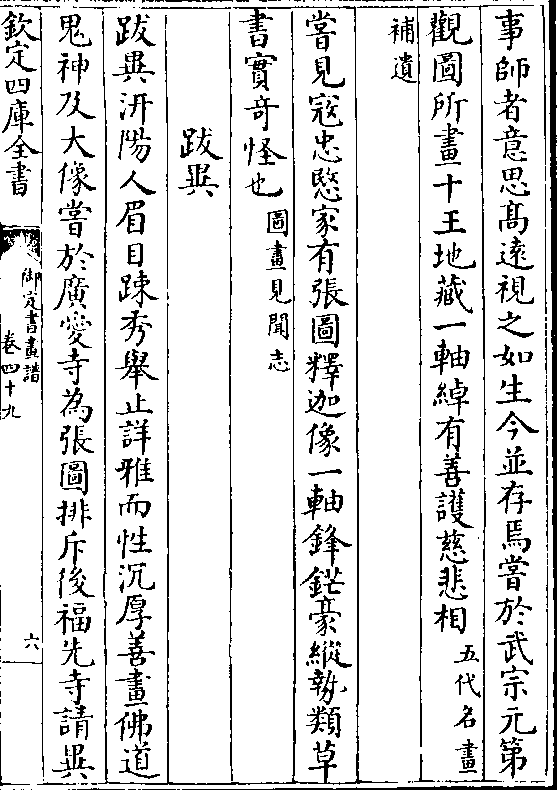 事師者意思髙遠視之如生今並存焉嘗於武宗元第
觀圖所畫十王地藏一軸綽有善護慈悲相五代名畫
補遺
嘗見冦忠愍家有張圖釋迦像一軸鋒鋩豪縱勢類草
書實奇怪也圖畫見聞志
跋異
跋異汧陽人眉目踈秀舉止詳雅而性沉厚善畫佛道
鬼神及大像嘗於廣愛寺為張圖排斥後福先寺請異
欽定四庫全書
御定書畫譜
卷四十九
六